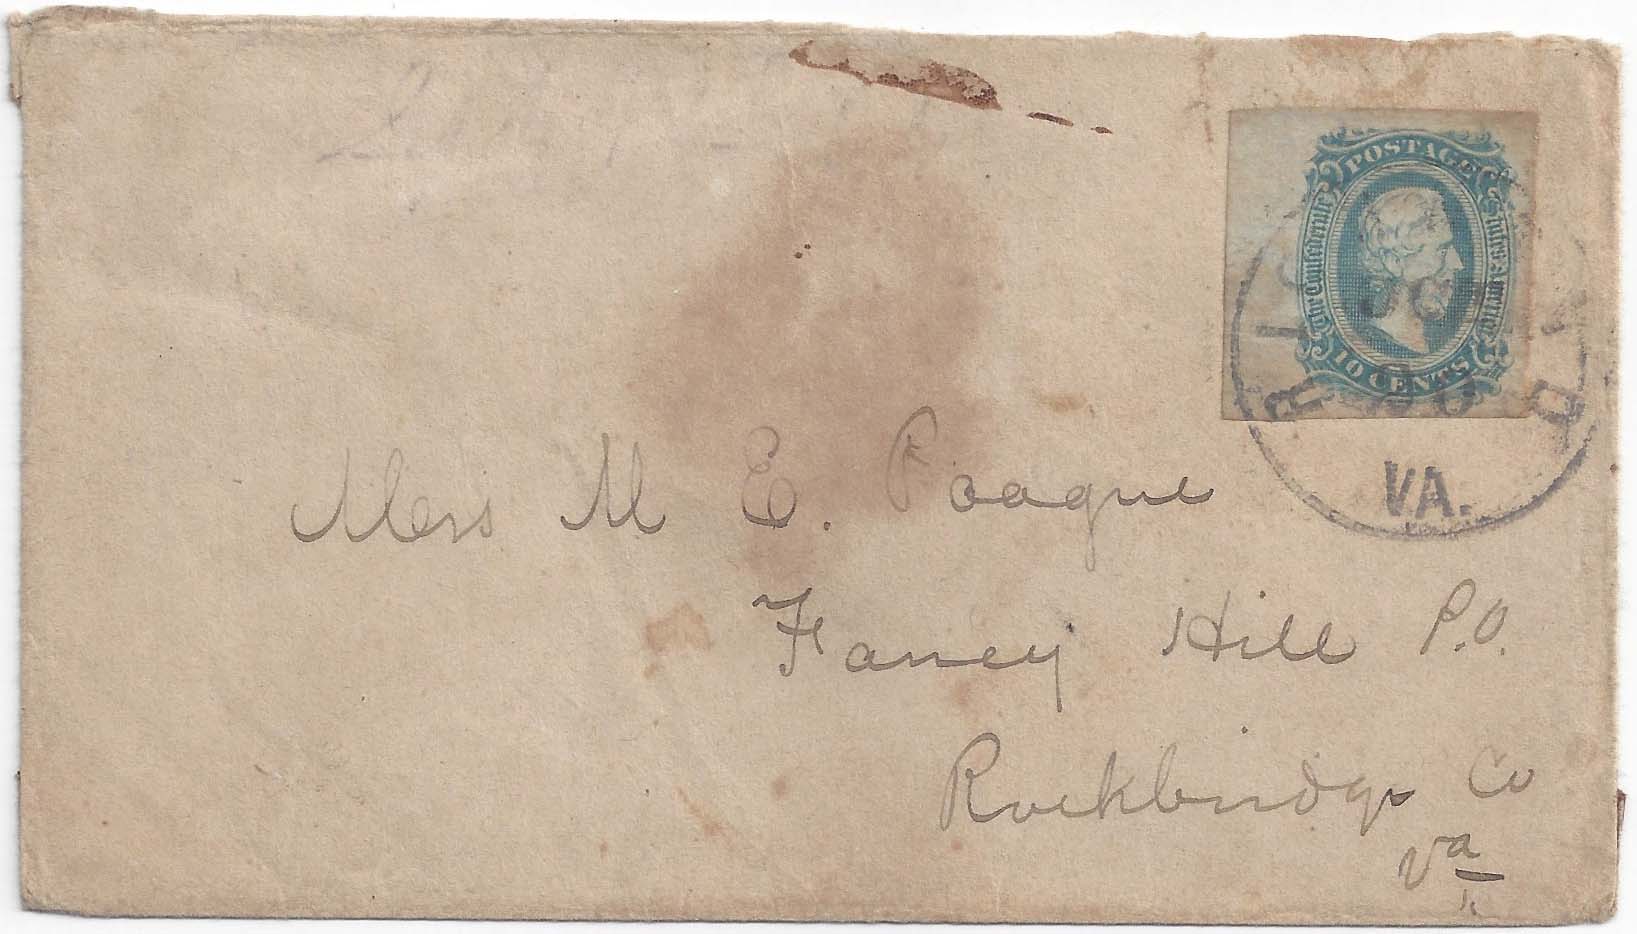 POSTAGE
The Confederate States of America
10 CENTS
RICHMOND
OCT
20
VA.
Mers M E. Poague
Fancy Hill P.O.
Rockbridge Co
Va